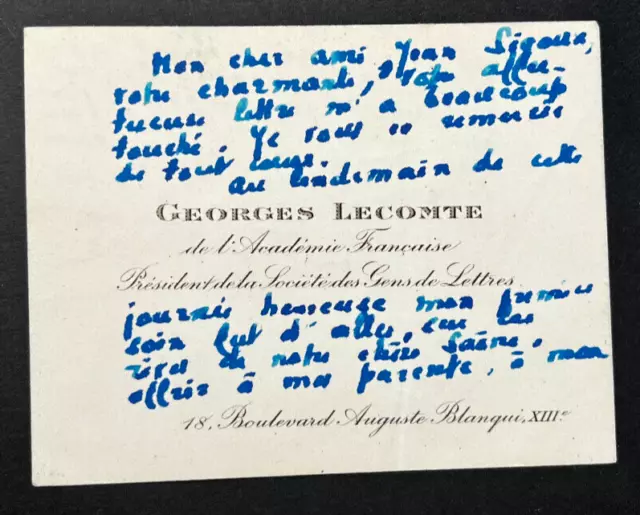 Mon cher ami Jean Sigoux,
votre charmante, votre affec-
tueuse lettre m'a beaucoup
touché. Je vous en remercie
de tout cœur.
Au lendemain de cette
GEORGES LECOMTE
de l'Académie Française
Président de la Société des Gens de Lettres
journée heureuse mon premier
soin fut d'aller, sur les
rives de notre chère Saône,
offrir à ma parente, à mon
18, Boulevard Auguste Blanqui, XIIIe